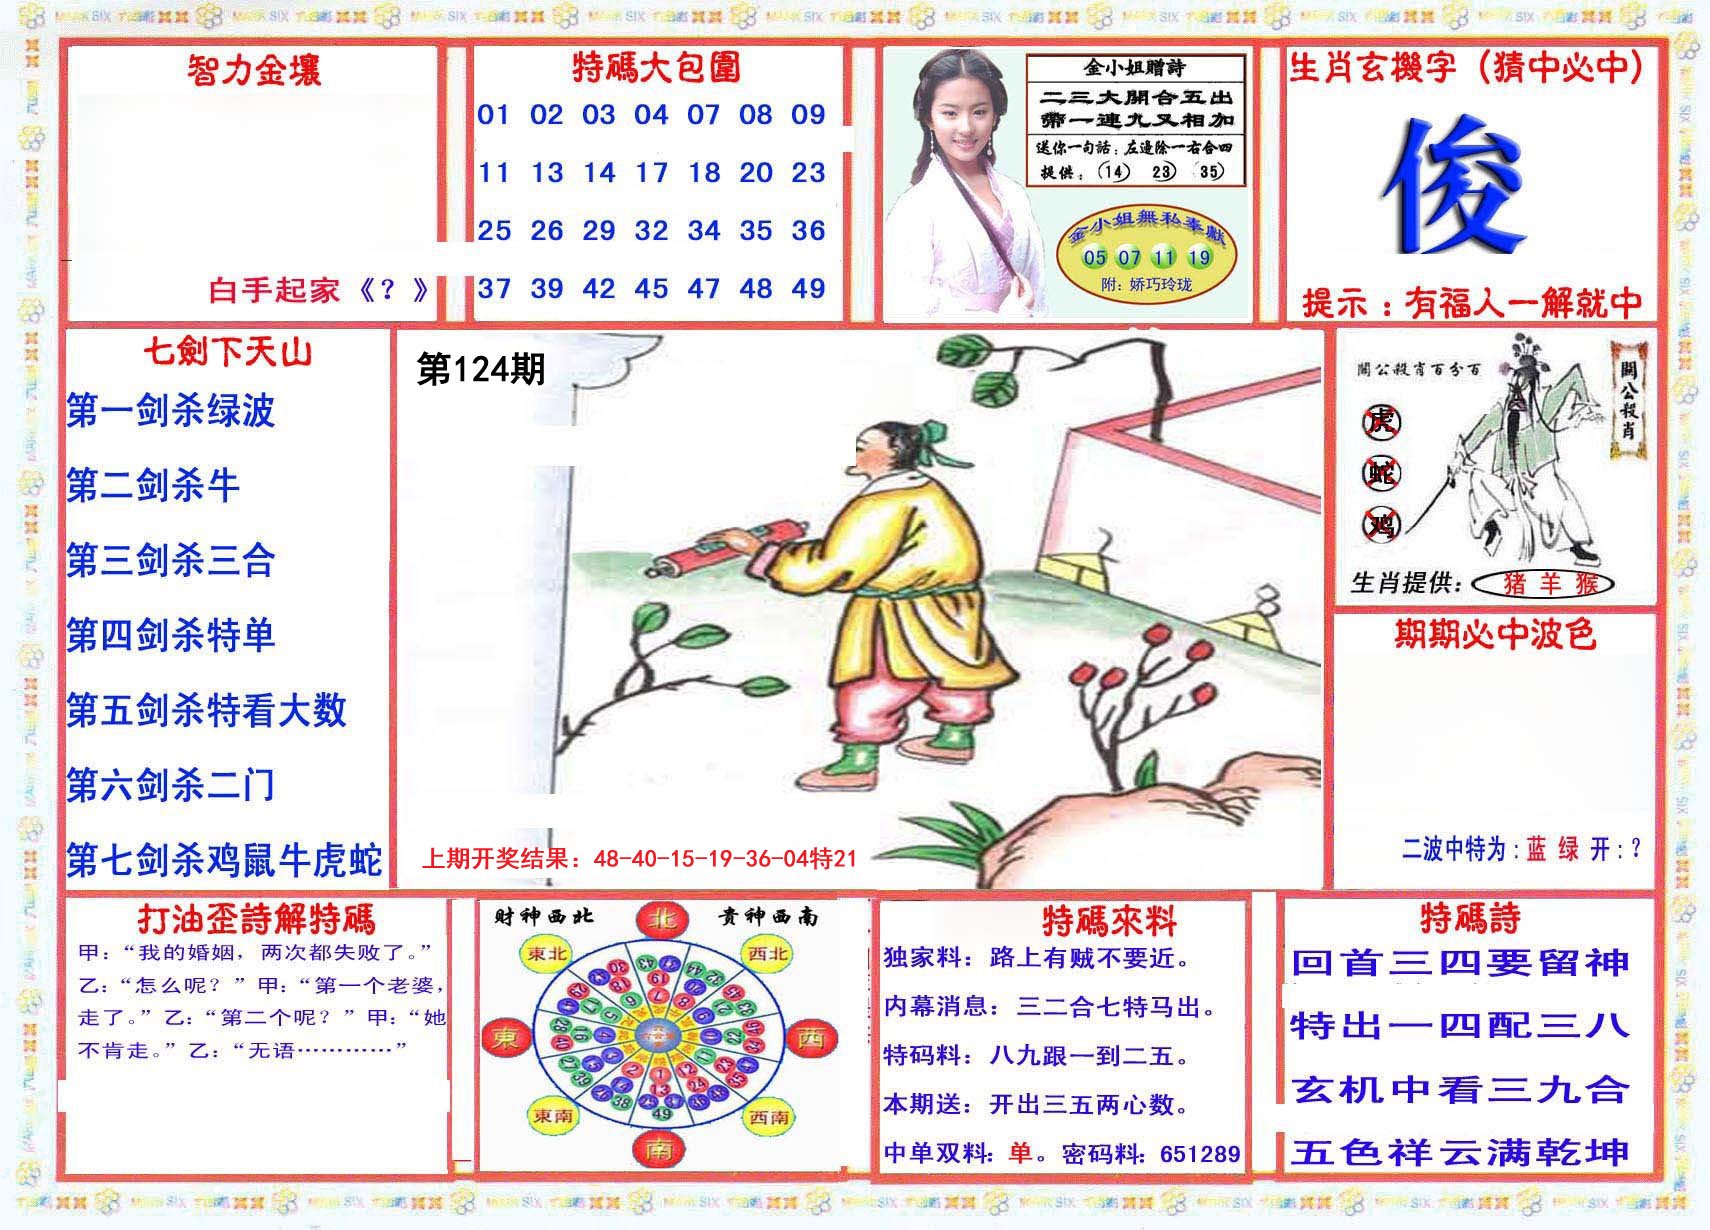 智力金壤
白手起家《？》
特碼大包圍
01 02 03 04 07 08 09
11 13 14 17 18 20 23
25 26 29 32 34 35 36
37 39 42 45 47 48 49
金小姐贈詩
二三大開合五出
帶一連九又相加
送你一句話：左邊除一右合四
提供：（14） 23） （35）
金小姐無私奉獻
05 07 11 19
附：娇巧玲珑
生肖玄機字（猜中必中）
俊
提示：有福人一解就中
七劍下天山
第一剑杀绿波
第二剑杀牛
第三剑杀三合
第四剑杀特单
第五剑杀特看大数
第六剑杀二门
第七剑杀鸡鼠牛虎蛇
第124期
上期开奖结果：48-40-15-19-36-04特21
關公殺肖百分百
關公殺肖
虎
蛇
鸡
生肖提供：猪 羊 猴
期期必中波色
二波中特为：蓝 绿 开：？
打油歪詩解特碼
甲：“我的婚姻，两次都失败了。”
乙：“怎么呢？”甲：“第一个老婆，
走了。”乙：“第二个呢？”甲：“她
不肯走。”乙：“无语…………”
財神西北
貴神西南
北
東北
西北
東
西
東南
西南
南
特碼來料
独家料：路上有贼不要近。
内幕消息：三二合七特马出。
特码料：八九跟一到二五。
本期送：开出三五两心数。
中单双料：单。密码料：651289
特碼詩
回首三四要留神
特出一四配三八
玄机中看三九合
五色祥云满乾坤